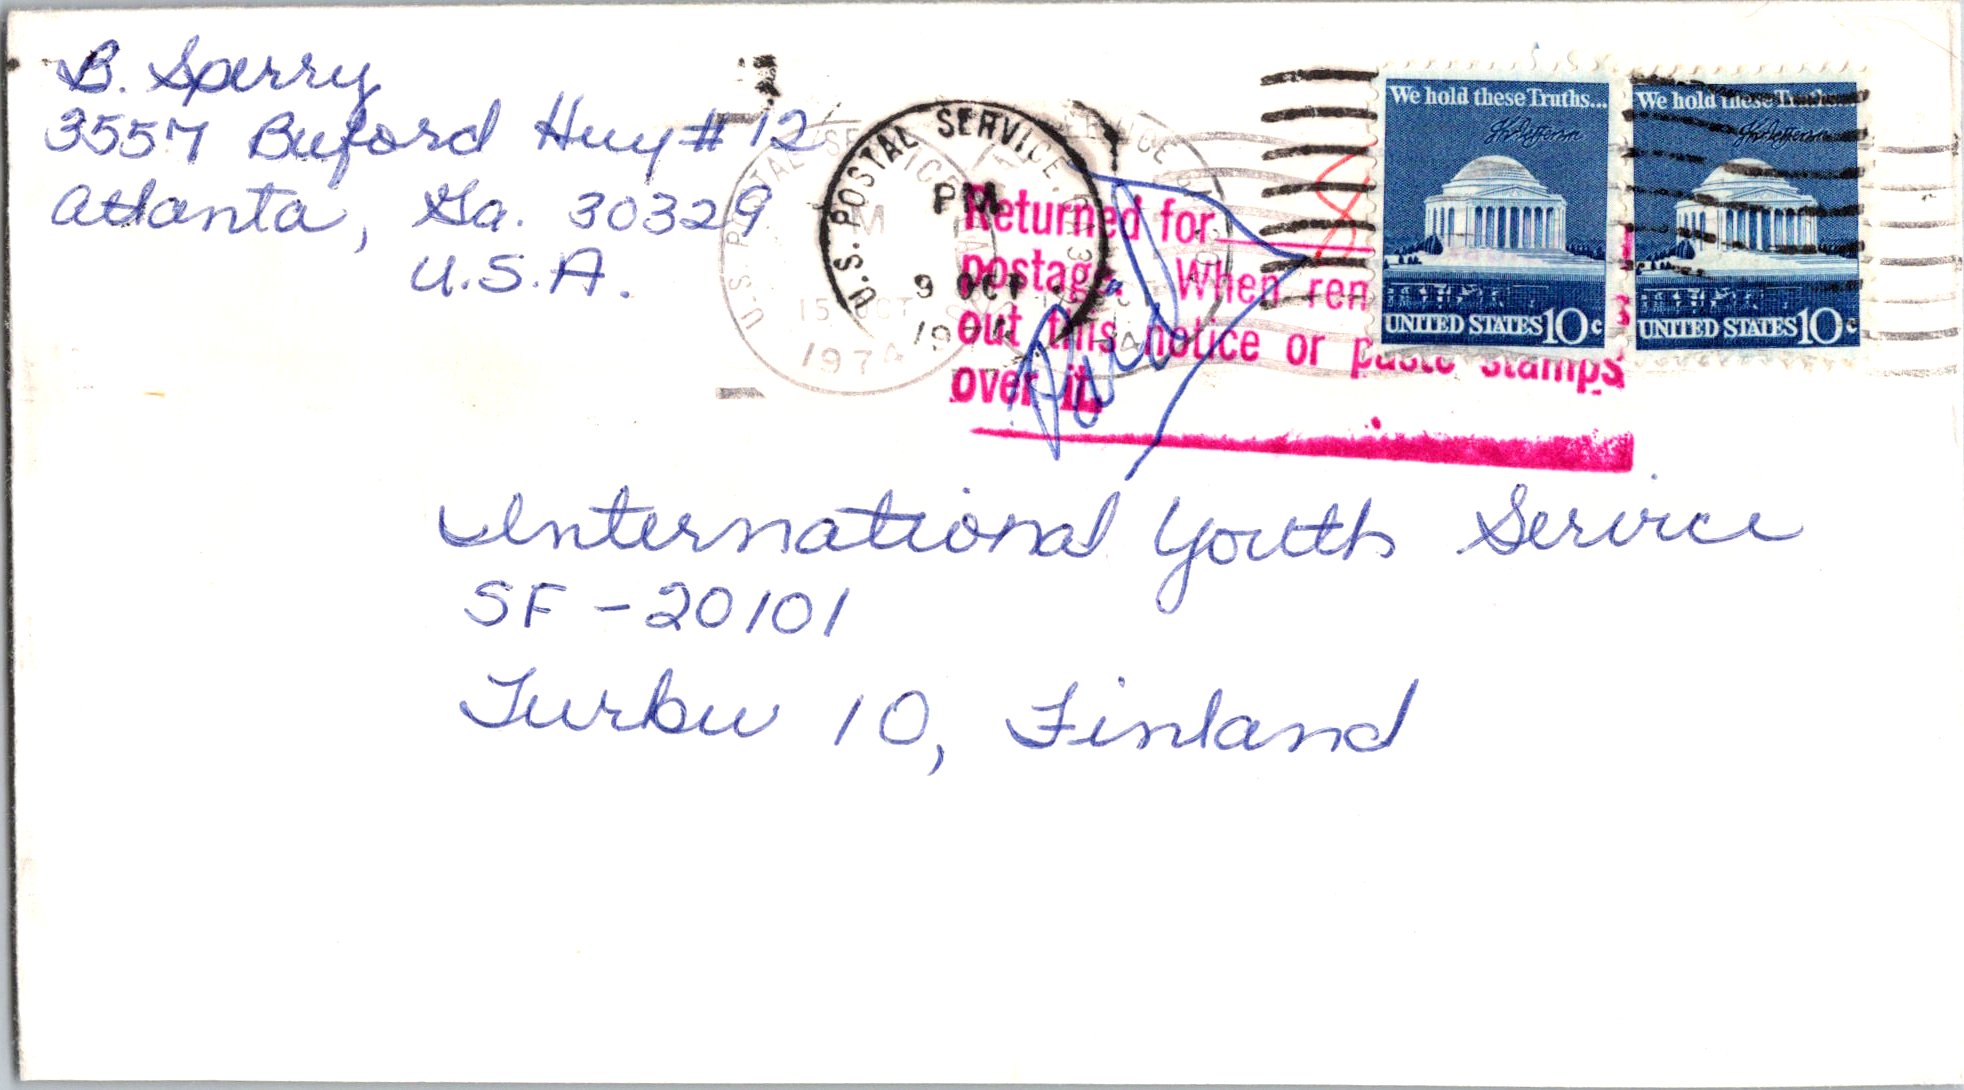 B. Sperry
3557 Buford Hwy #12
Atlanta, Ga. 30329
U.S.A.
U.S. POSTAL SERVICE, GA 3
PM
9 OCT
1974
U.S. POSTAL SERVICE
15 OCT
1974
Returned for
postage. When ren
out this notice or paste stamps
over it.
We hold these Truths...
Th Jefferson
UNITED STATES 10c
We hold these Truths...
Th Jefferson
UNITED STATES 10c
International Youth Service
SF - 20101
Turku 10, Finland